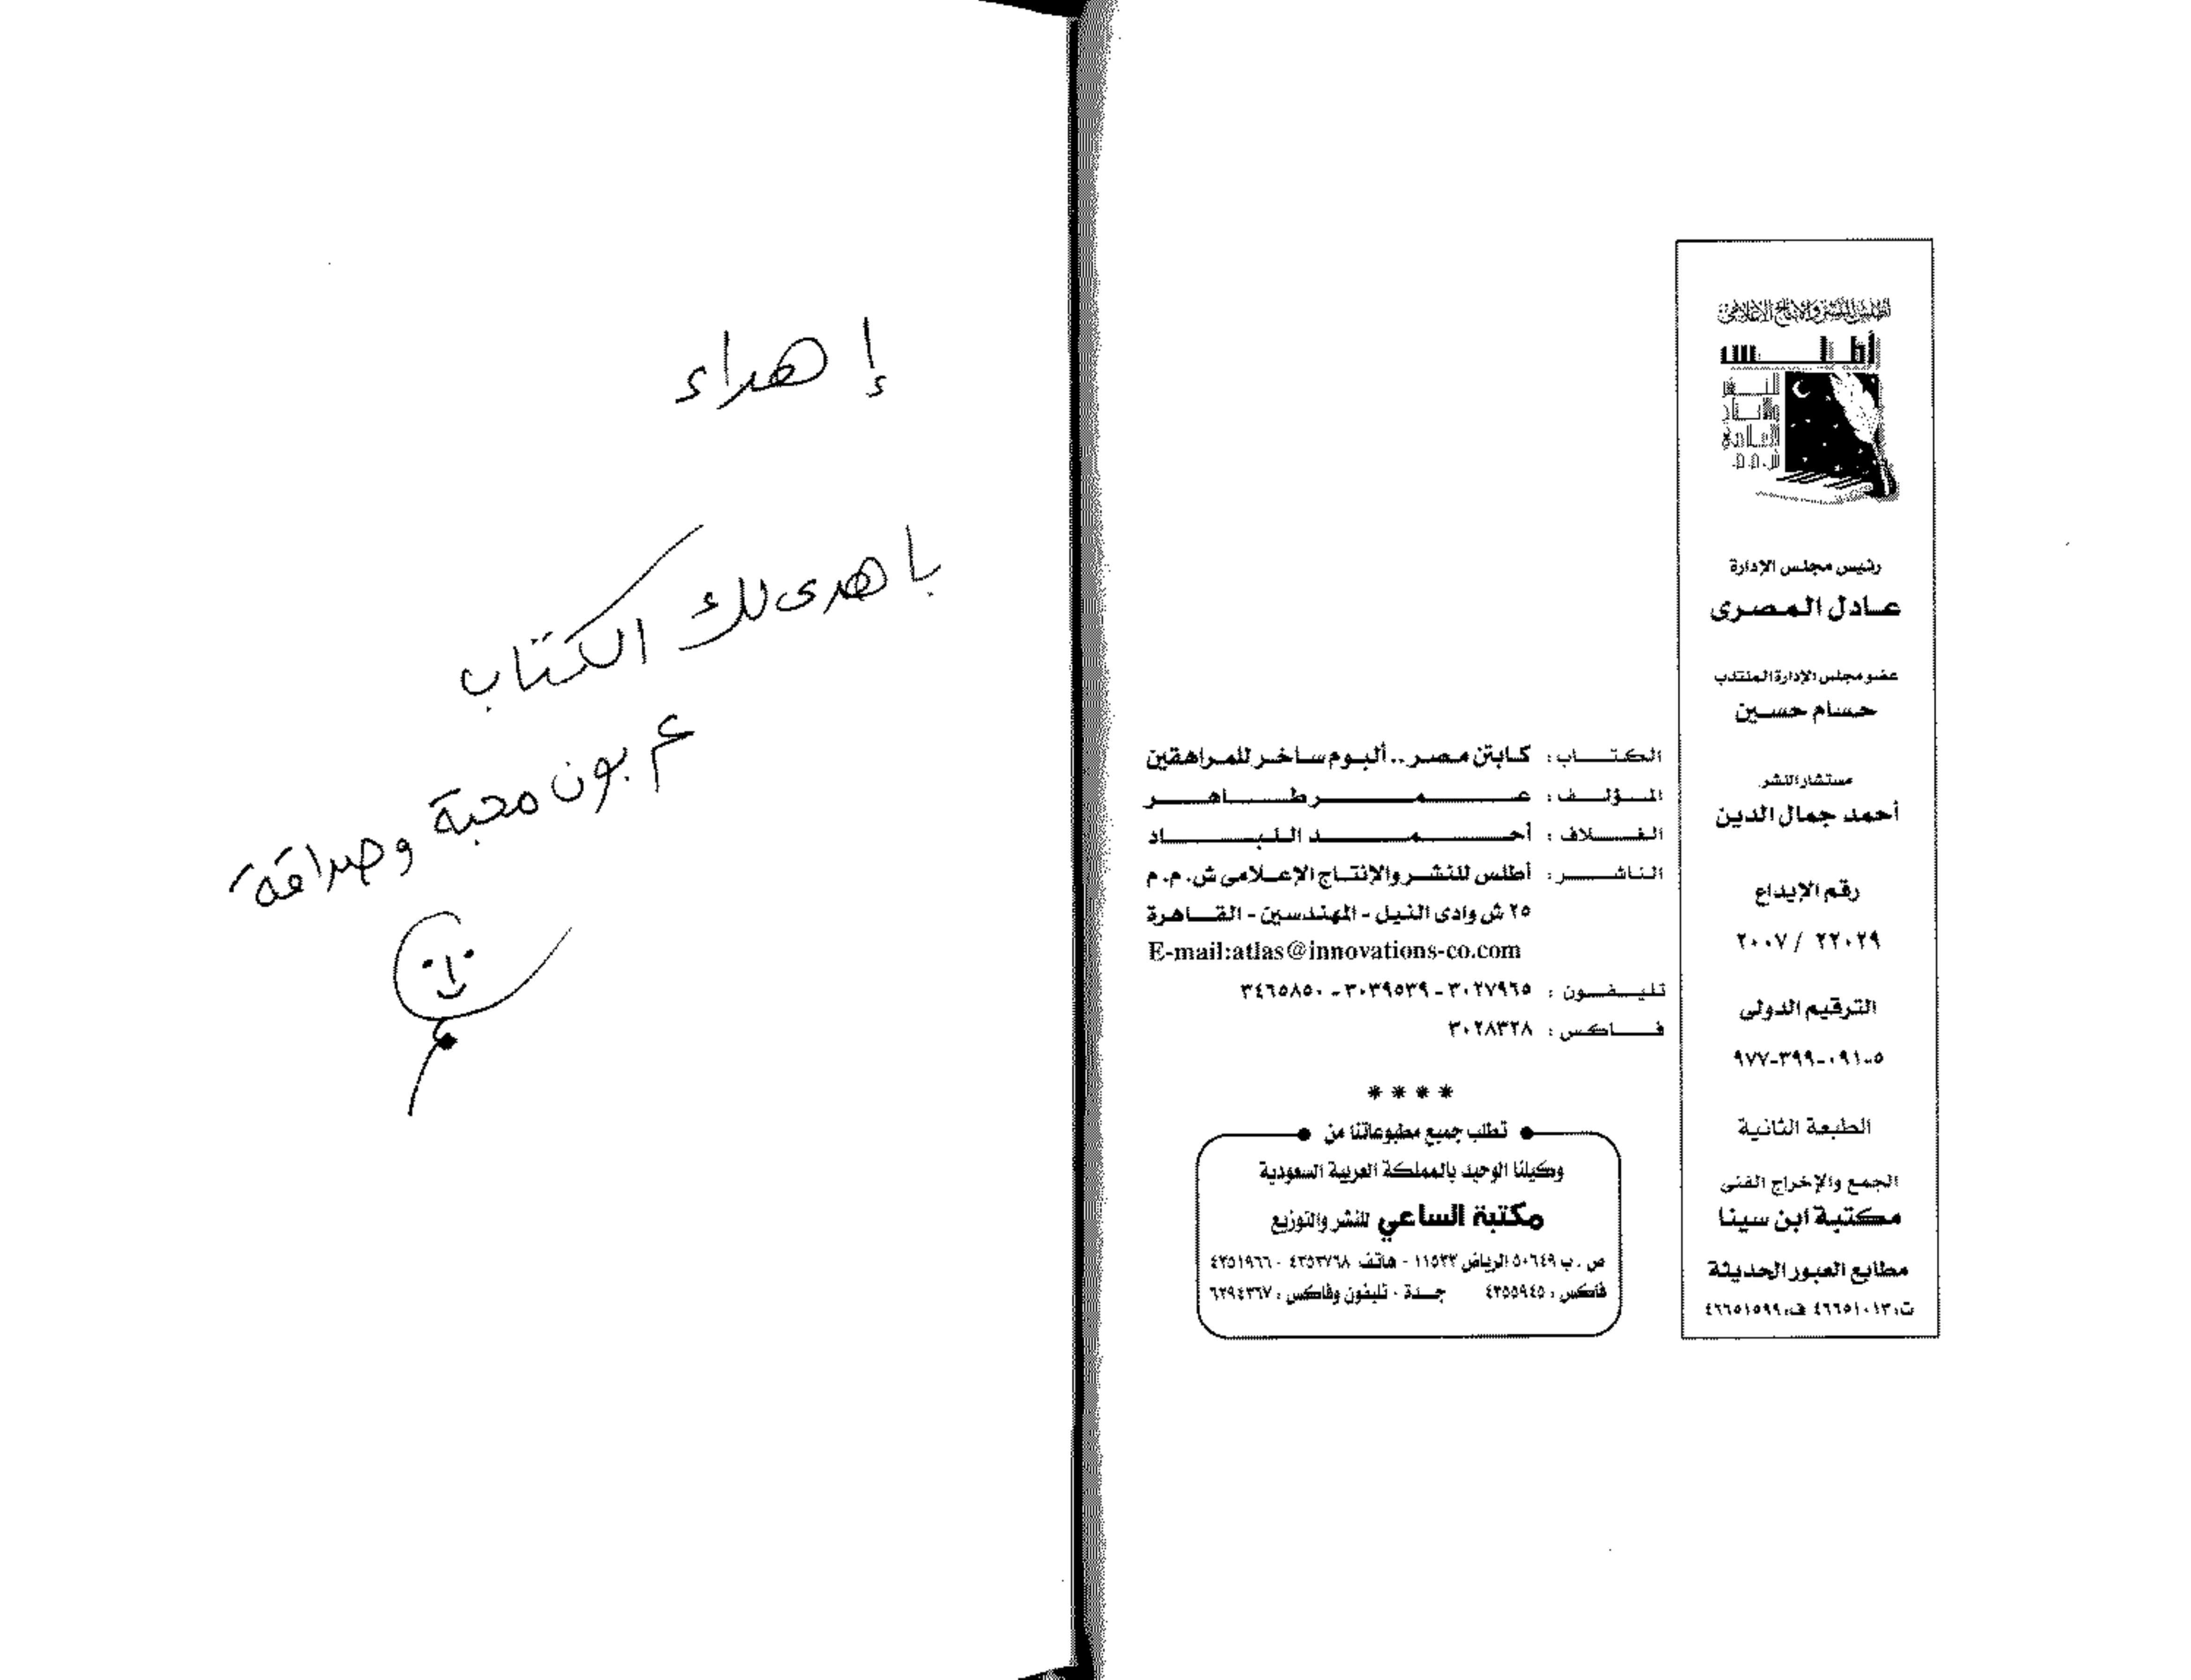 إهداء
باهدى لك الكتاب
عربون محبة وصداقة
أطلس للنشر والإنتاج الإعلامى
أطلس
للنشر
والإنتاج
الإعلامى
ش.م.م
رئيس مجلس الإدارة
عادل المصرى
عضو مجلس الإدارة المنتدب
حسام حسين
مستشار النشر
أحمد جمال الدين
رقم الإيداع
٢٢٠٢٩ / ٢٠٠٧
الترقيم الدولى
٩٧٧-٣٩٩-٠٩١-٥
الطبعة الثانية
الجمع والإخراج الفنى
مكتبة ابن سينا
مطابع العبور الحديثة
ت: ٤٦٦٥١٠١٣ ف: ٤٦٦٥١٥٩٩
الكتاب : كابتن مصر .. ألبوم ساخر للمراهقين
المؤلف : عمر طاهر
الغلاف : أحمد اللباد
الناشر : أطلس للنشر والإنتاج الإعلامى ش.م.م
٢٥ ش وادى النيل - المهندسين - القاهرة
E-mail:atlas@innovations-co.com
تليفون : ٣٠٢٧٩٦٥ - ٣٠٣٩٥٣٩ - ٣٤٦٥٨٥٠
فاكس : ٣٠٢٨٣٢٨
****
تطلب جميع مطبوعاتنا من
وكيلنا الوحيد بالمملكة العربية السعودية
مكتبة الساعي للنشر والتوزيع
ص . ب ٥٠٦٤٩ الرياض ١١٥٣٣ - هاتف ٤٣٥٣٧٦٨ - ٤٣٥١٩٦٦
فاكس : ٤٣٥٥٩٤٥ جدة - تليفون وفاكس : ٦٢٩٤٣٦٧